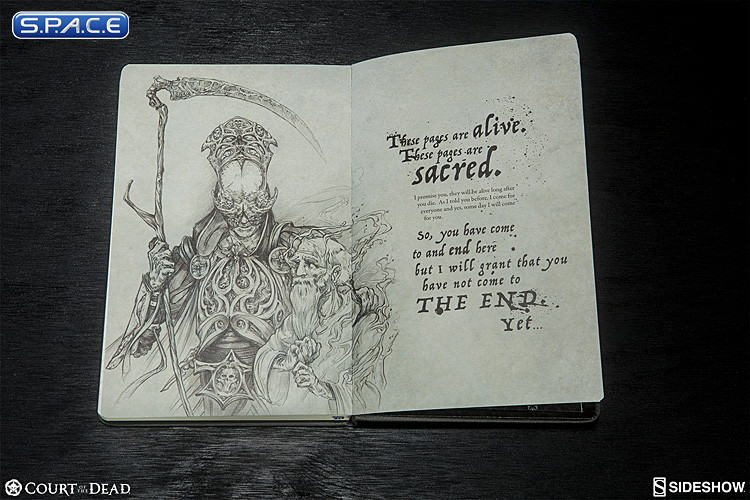 S.P.A.C.E
These pages are alive.
These pages are
sacred.
I promise you, they will be alive long after
you die. As I told you before, I come for
everyone and yes, some day I will come
for you.
So, you have come
to and end here
but I will grant that you
have not come to
THE END.
Yet...
COURT OF THE DEAD
SIDESHOW